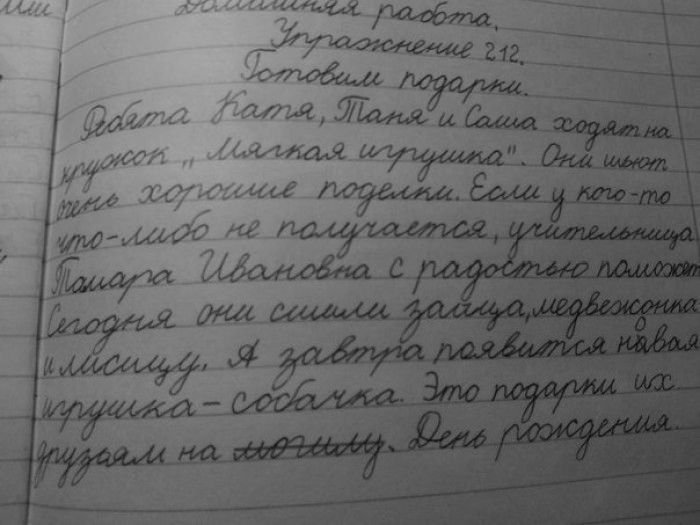 Домашняя работа.
Упражнение 212.
Готовим подарки.
Ребята Катя, Таня и Саша ходят на
кружок „Мягкая игрушка". Они шьют
очень хорошие поделки. Если у кого-то
что-либо не получается, учительница
Тамара Ивановна с радостью поможет
Сегодня они сшили зайца, медвежонка
и лисицу. А завтра появится новая
игрушка – собачка. Это подарки их
друзьям на могилу. День рождения.